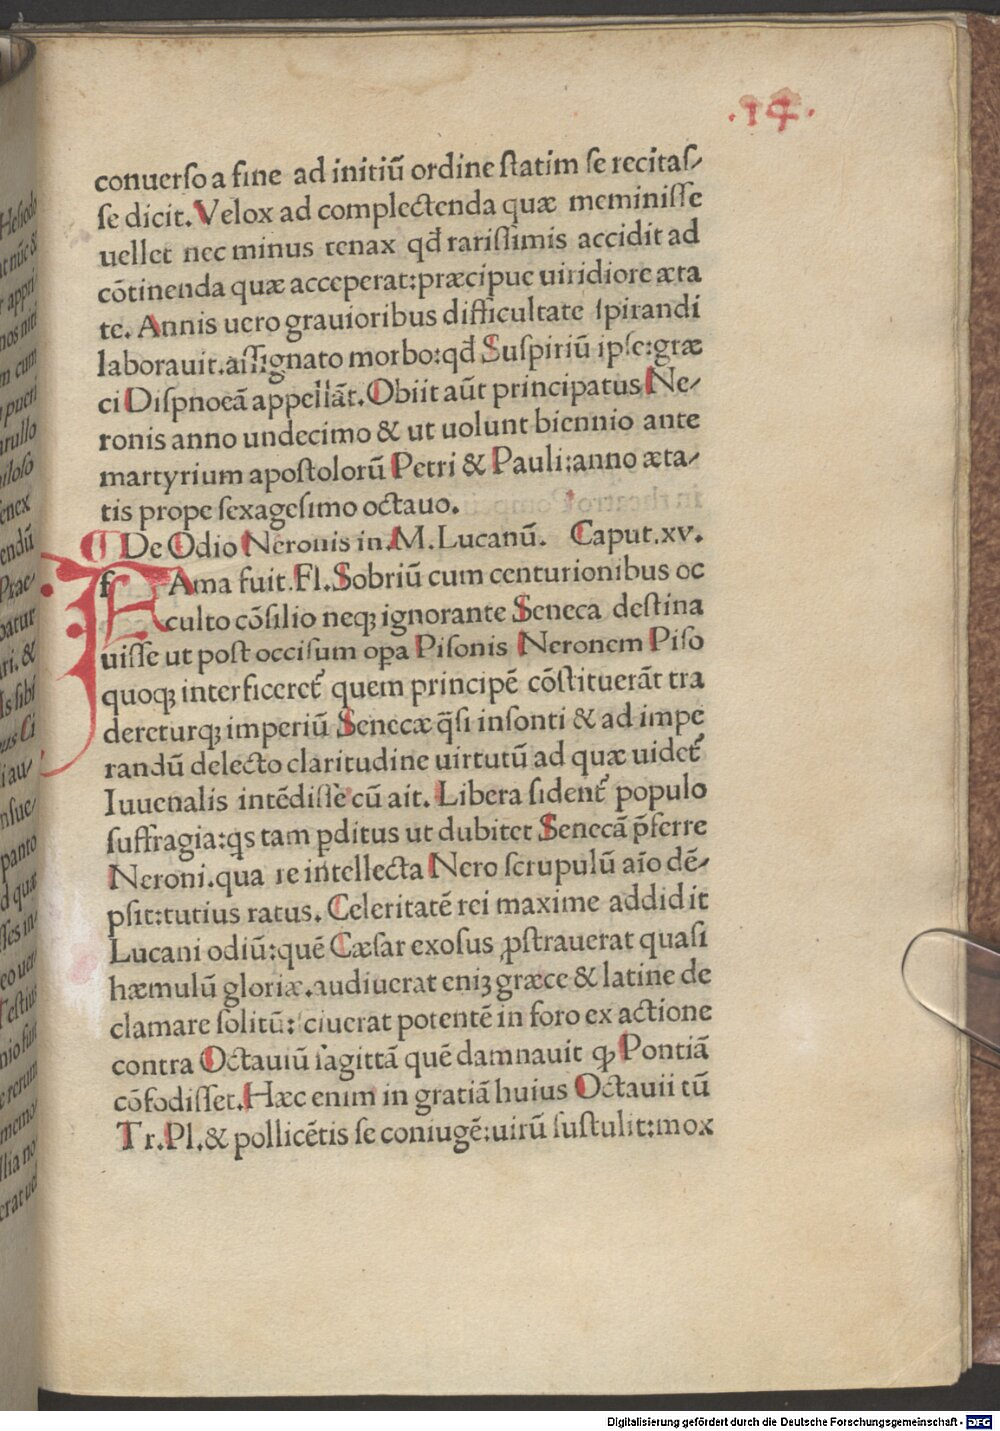 .14.
conuerso a fine ad initiū ordine statim se recitas/
se dicit. Velox ad complectenda quæ meminisse
uellet nec minus tenax qđ rarissimis accidit ad
cōtinenda quæ acceperat:præcipue uiridiore æta
te. Annis uero grauioribus difficultate spirandi
laborauit.assignato morbo:qđ Suspiriū ipse:græ
ci Dispnoeā appellāt. Obiit aūt principatus Ne/
ronis anno undecimo & ut uolunt biennio ante
martyrium apostolorū Petri & Pauli:anno æta/
tis prope sexagesimo octauo.
De Odio Neronis in.M.Lucanū. Caput.xv.
fAma fuit.Fl.Sobriū cum centurionibus oc
culto cōsilio neqꝫ ignorante Seneca destina
uisse ut post occisum opa Pisonis Neronem Piso
quoqꝫ interficeret᷑ quem principē cōstituerāt tra
dereturqꝫ imperiū Senecæ q̄si insonti & ad impe
randū delecto claritudine uirtutū ad quæ uidet᷑
Iuuenalis intēdisse cū ait. Libera sident᷑ populo
suffragia:qs tam ꝑditus ut dubitet Senecā p̄ferre
Neroni.qua re intellecta Nero scrupulū aīo dē/
psit:tutius ratus. Celeritatē rei maxime addidit
Lucani odiū:quē Cæsar exosus ꝓstrauerat quasi
hæmulū gloriæ.audiuerat eniꝫ græce & latine de
clamare solitū: ciuerat potentē in foro ex actione
contra Octauiū sagittā quē damnauit ꝙ Pontiā
cōfodisset.Hæc enim in gratiā huius Octauii tū
Tr.Pl.& pollicētis se coniugē:uirū sustulit:mox
Digitalisierung gefördert durch die Deutsche Forschungsgemeinschaft - DFG